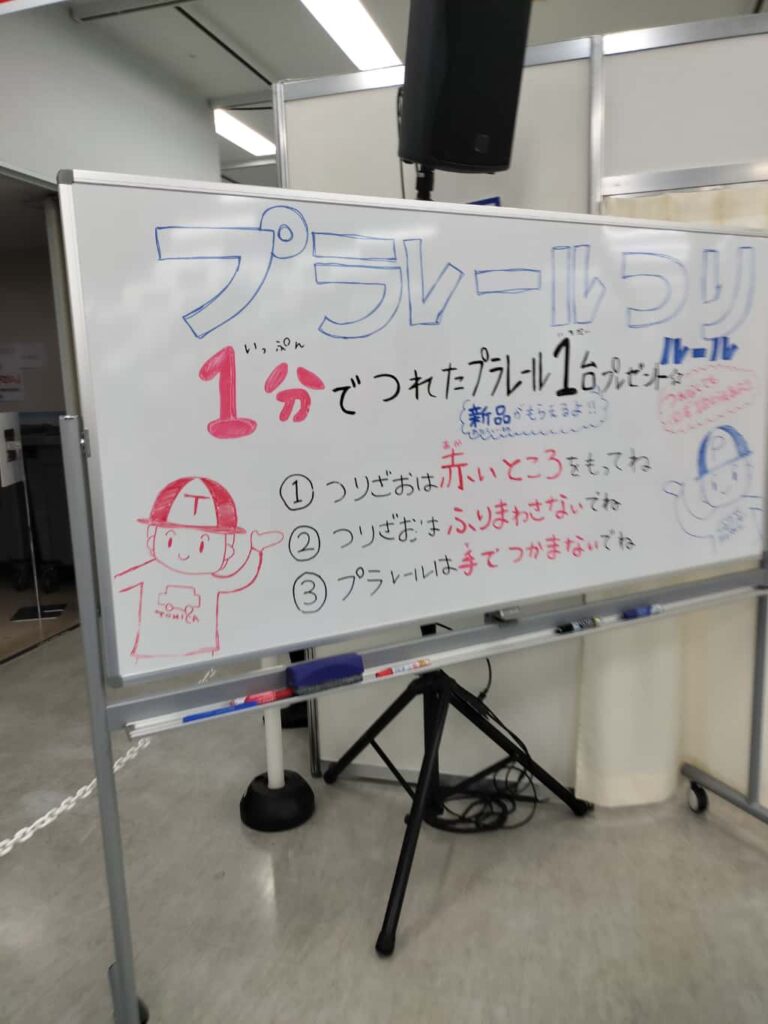 プラレールつり
ルール
いっぷん
いちだい
1分でつれたプラレール1台プレゼント☆
新品がもらえるよ!!
あか
① つりざおは赤いところをもってね
② つりざおはふりまわさないでね
て
③ プラレールは手でつかまないでね
T
TOMICA
P